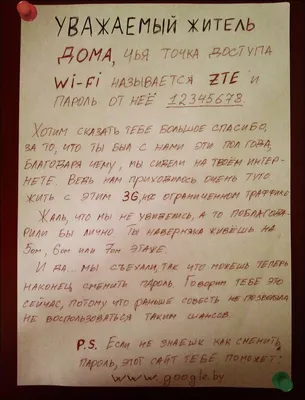 УВАЖАЕМЫЙ ЖИТЕЛЬ
ДОМА, ЧЬЯ ТОЧКА ДОСТУПА
Wi-Fi НАЗЫВАЕТСЯ ZTE И
ПАРОЛЬ ОТ НЕЁ 12345678.
ХОТИМ СКАЗАТЬ ТЕБЕ БОЛЬШОЕ СПАСИБО,
ЗА ТО, ЧТО ТЫ БЫЛ С НАМИ ЭТИ ПОЛ ГОДА,
БЛАГОДАРЯ ЧЕМУ, МЫ СИДЕЛИ НА ТВОЁМ ИНТЕР-
НЕТЕ. ВЕДЬ НАМ ПРИХОДИЛОСЬ ОЧЕНЬ ТУГО
ЖИТЬ С ЭТИМ 3G НА ОГРАНИЧЕННОМ ТРАФФИКЕ.
ЖАЛЬ, ЧТО МЫ НЕ УВИДЕЛИСЬ, А ТО ПОБЛАГОДА-
РИЛИ БЫ ЛИЧНО. ТЫ НАВЕРНЯКА ЖИВЁШЬ НА
5ОМ, 6ОМ ИЛИ 7ОМ ЭТАЖЕ.
И ДА... МЫ СЪЕХАЛИ, ТАК ЧТО МОЖЕШЬ ТЕПЕРЬ
НАКОНЕЦ СМЕНИТЬ ПАРОЛЬ. ГОВОРИМ ТЕБЕ ЭТО
СЕЙЧАС, ПОТОМУ ЧТО РАНЬШЕ СОВЕСТЬ НЕ ПОЗВОЛЯЛА
НЕ ВОСПОЛЬЗОВАТЬСЯ ТАКИМ ШАНСОМ.
P.S. ЕСЛИ НЕ ЗНАЕШЬ КАК СМЕНИТЬ
ПАРОЛЬ, ЭТОТ САЙТ ТЕБЕ ПОМОЖЕТ:
www.google.by